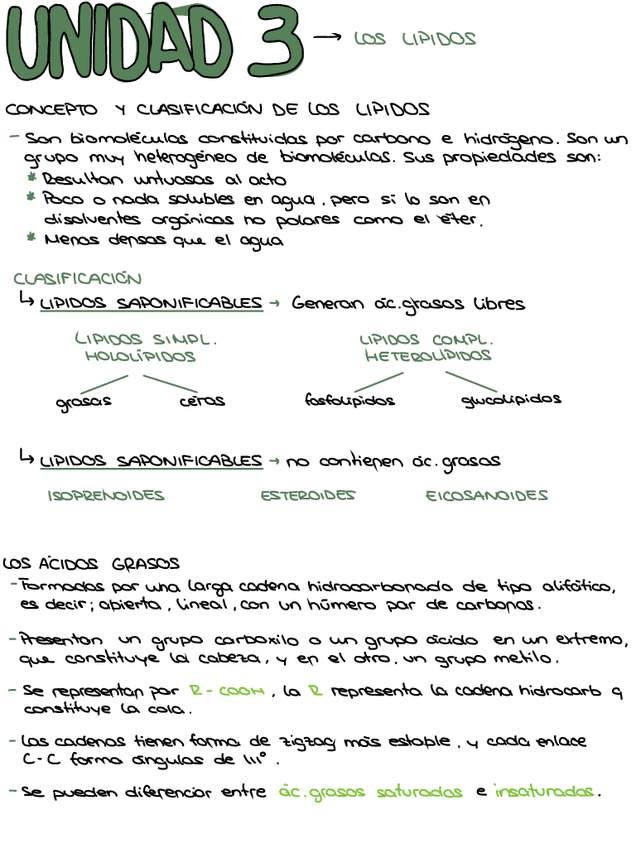 UNIDAD 3 → LOS LIPIDOS
CONCEPTO Y CLASIFICACIÓN DE LOS LIPIDOS
- Son biomoléculas constituidas por carbono e hidrógeno. Son un
grupo muy heterogéneo de biomoléculas. Sus propiedades son:
* Resultan untuosas al acto
* Poco o nada solubles en agua, pero si lo son en
disolventes orgánicos no polares como el éter.
* Menos densos que el agua
CLASIFICACIÓN
↳ LIPIDOS SAPONIFICABLES → Generan ác.grasos libres
LIPIDOS SIMPL. LIPIDOS COMPL.
HOLOLÍPIDOS HETEROLÍPIDOS
grasas ceras fosfolípidos glucolípidos
↳ LIPIDOS SAPONIFICABLES → no contienen ác.grasos
ISOPRENOIDES ESTEROIDES EICOSANOIDES
LOS ÁCIDOS GRASOS
- Formados por una larga cadena hidrocarbonada de tipo alifático,
es decir; abierta, lineal, con un número par de carbonos.
- Presentan un grupo carboxilo o un grupo ácido en un extremo,
que constituye la cabeza, y en el otro, un grupo metilo.
- Se representan por R-COOH, la R representa la cadena hidrocarb q
constituye la cola.
- Las cadenas tienen forma de zigzag más estable, y cada enlace
C-C forma ángulos de 111°.
- Se pueden diferenciar entre ác.grasos saturados e insaturados.